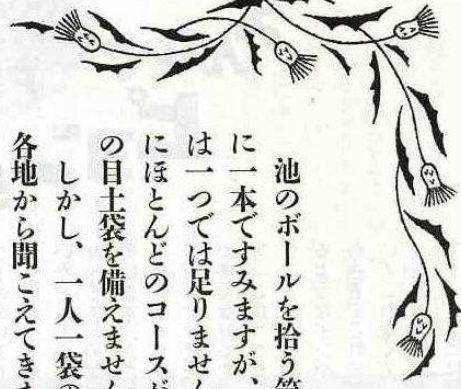 池のボールを拾う
に一本ですみますが、
は一つでは足りません
にほとんどのコースが
の目土袋を備えません
しかし、一人一袋の
各地から聞こえてきま